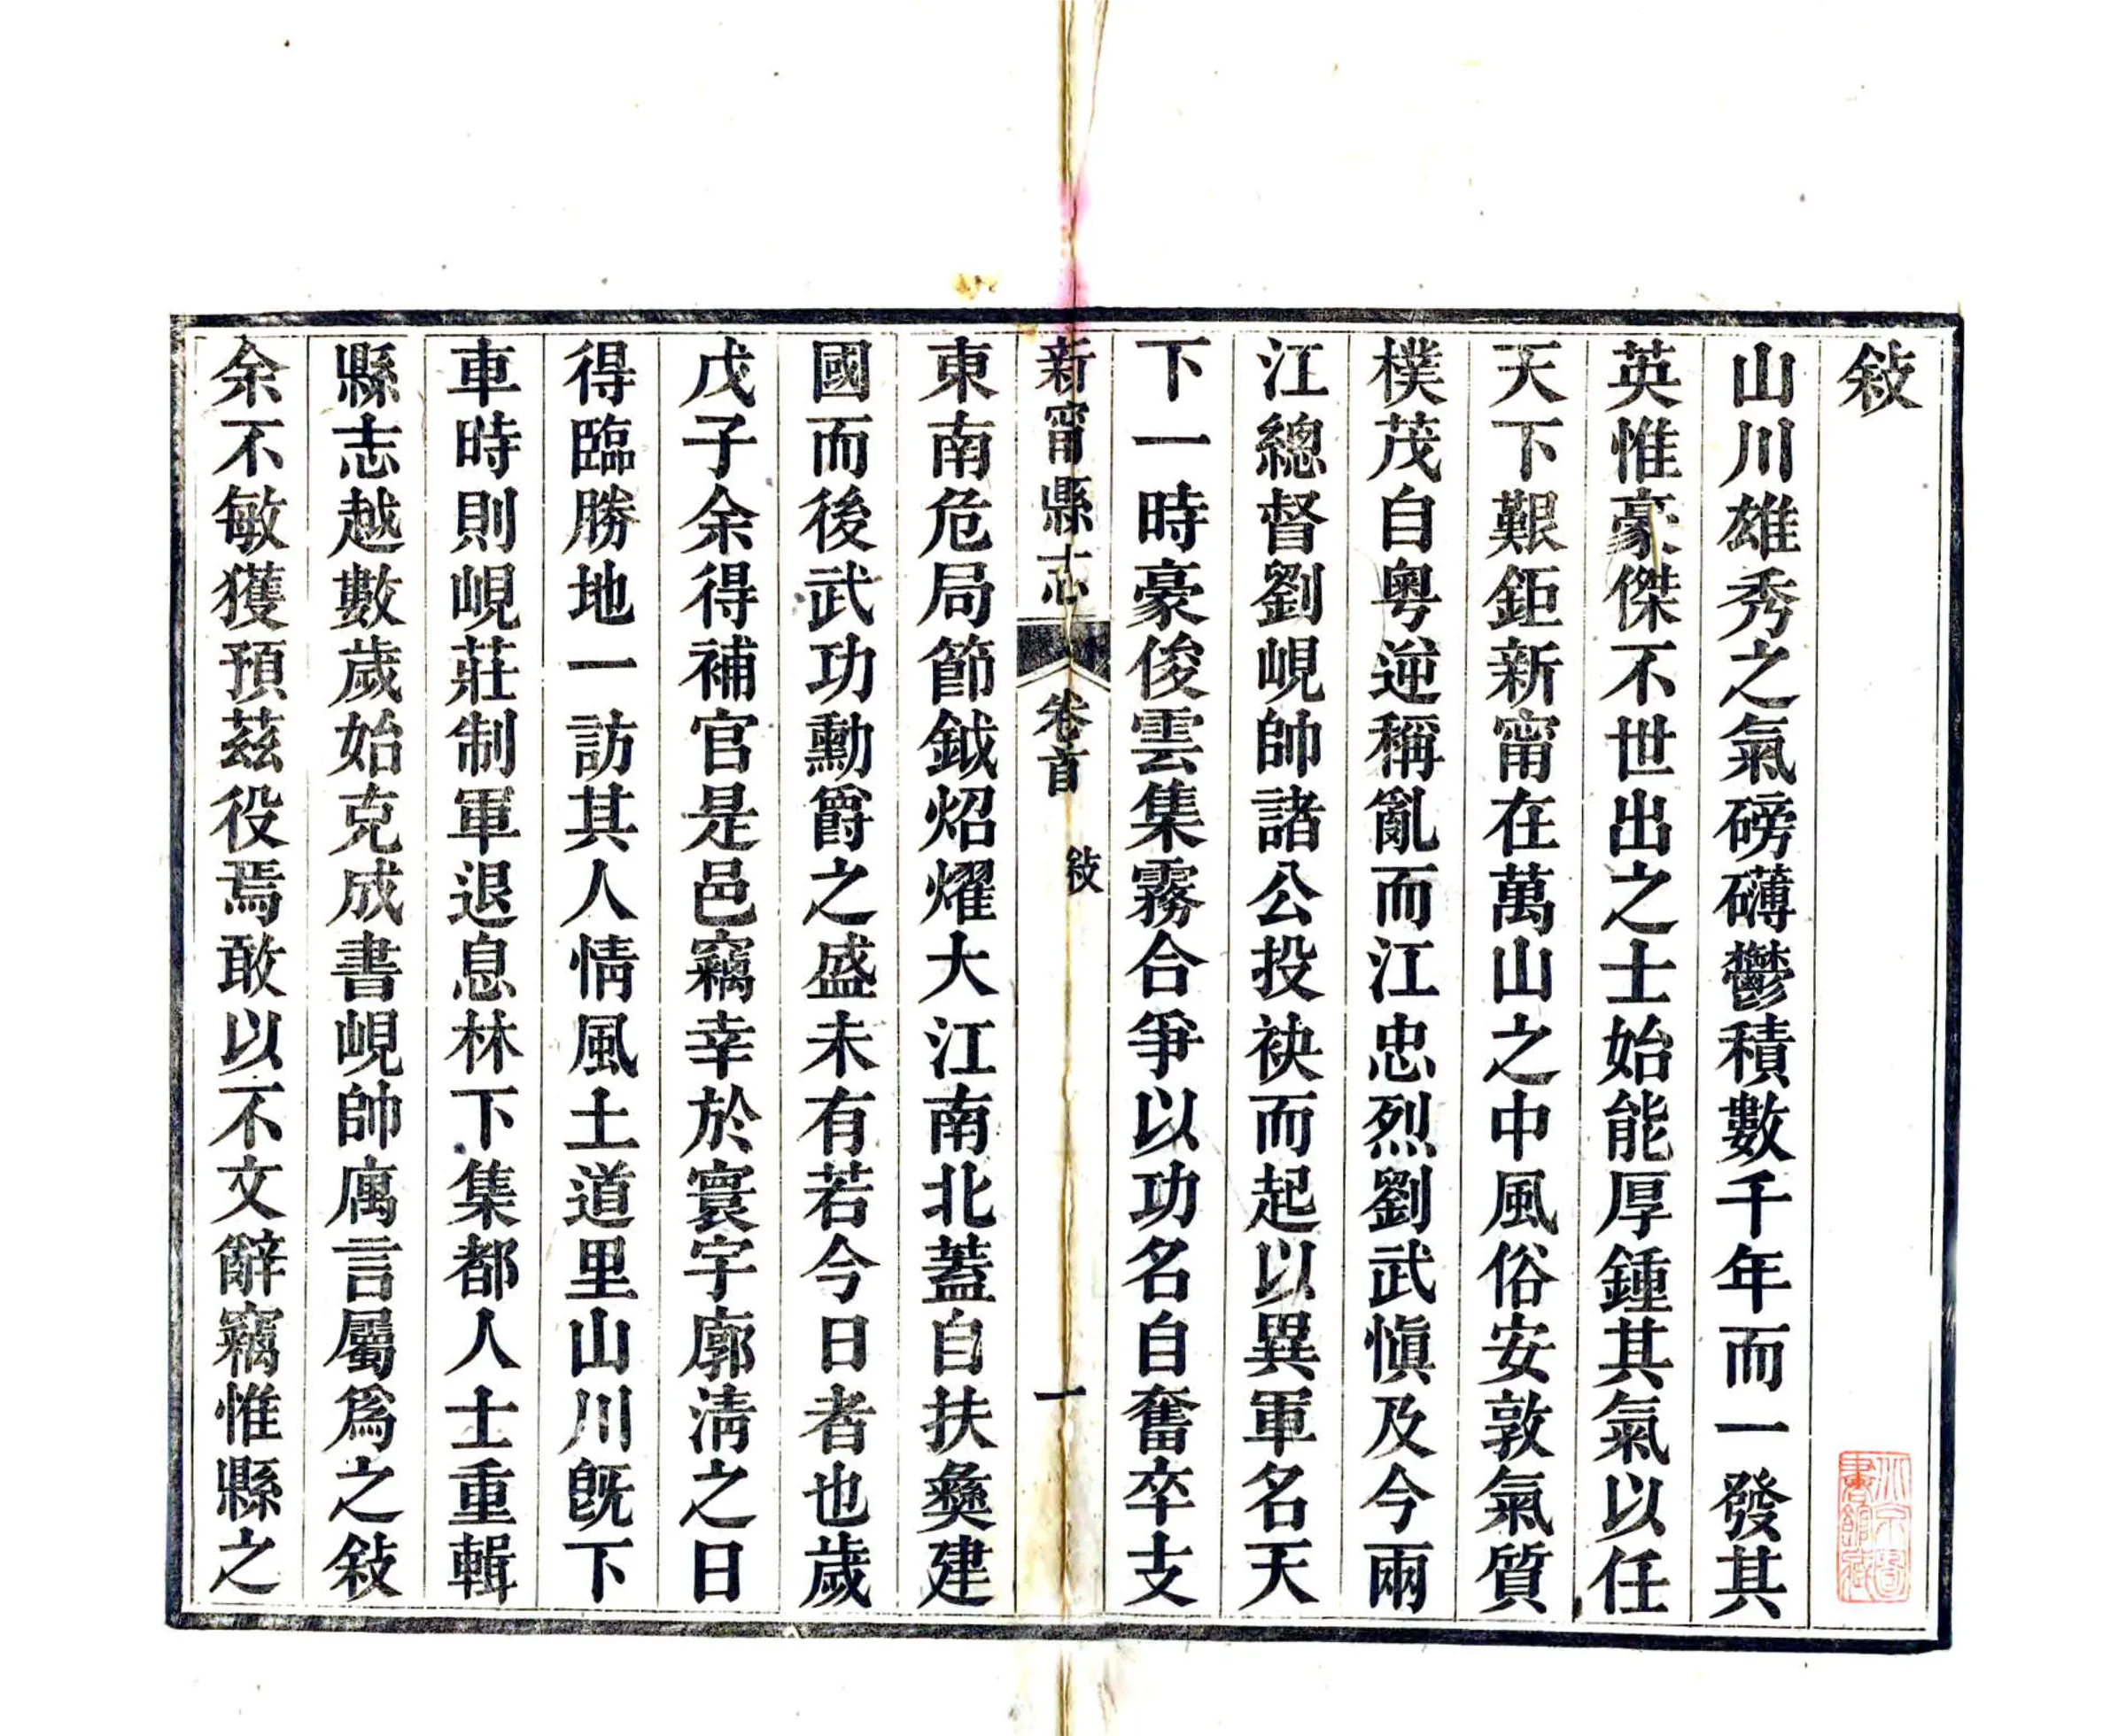 敍
山川雄秀之氣磅礴鬱積數千年而一發其
英惟豪傑不世出之士始能厚鍾其氣以任
天下艱鉅新甯在萬山之中風俗安敦氣質
樸茂自粤逆稱亂而江忠烈劉武愼及今兩
江總督劉峴帥諸公投袂而起以異軍名天
下一時豪俊雲集霧合爭以功名自奮卒支
新甯縣志 卷首 敍 一
東南危局節鉞炤燿大江南北蓋自扶彝建
國而後武功勳爵之盛未有若今日者也歲
戊子余得補官是邑竊幸於寰宇廓淸之日
得臨勝地一訪其人情風土道里山川旣下
車時則峴莊制軍退息林下集都人士重輯
縣志越數歲始克成書峴帥寓言屬爲之敍
余不敏獲預茲役焉敢以不文辭竊惟縣之